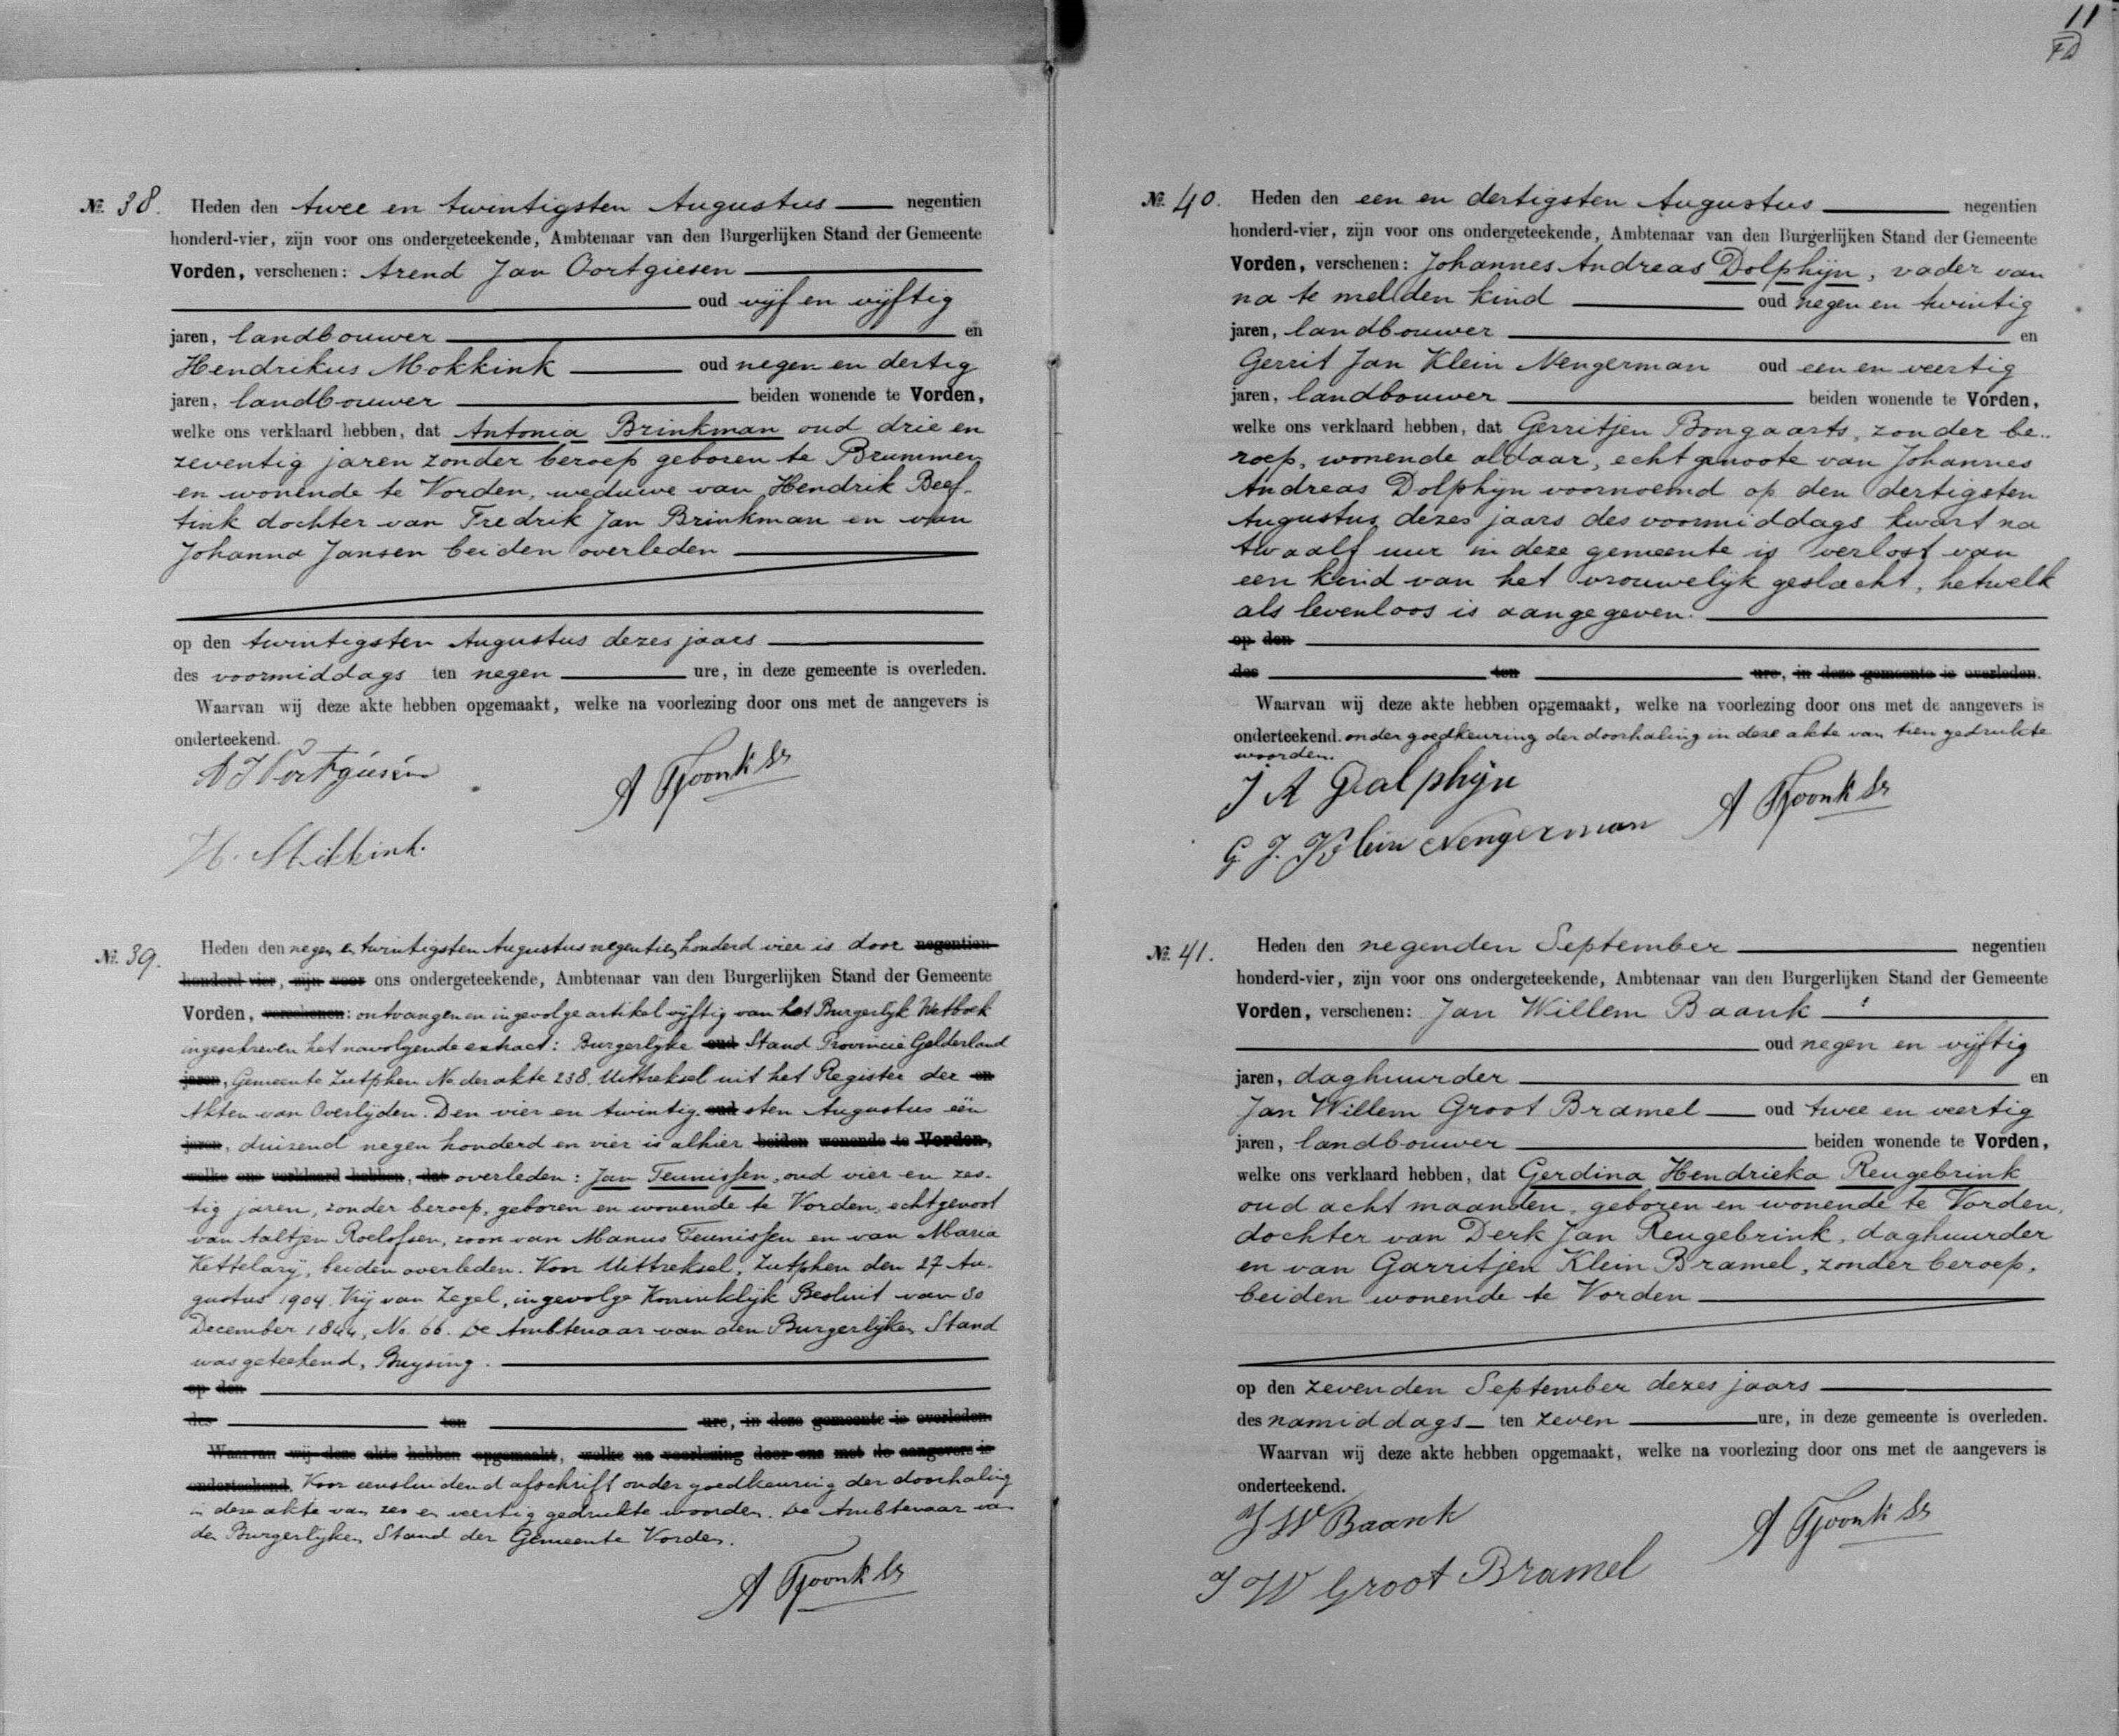 11
FD
№. 38. Heden den twee en twintigsten Augustus negentien
honderd-vier, zijn voor ons ondergeteekende, Ambtenaar van den Burgerlijken Stand der Gemeente
Vorden, verschenen: Arend Jan Oortgiesen
oud vijf en vijftig
jaren, landbouwer en
Hendrikus Mokkink oud negen en dertig
jaren, landbouwer beiden wonende te Vorden,
welke ons verklaard hebben, dat Antonia Brinkman oud drie en
zeventig jaren zonder beroep geboren te Brummen
en wonende te Vorden, weduwe van Hendrik Beef-
tink dochter van Fredrik Jan Brinkman en van
Johanna Jansen beiden overleden
op den twintigsten Augustus dezes jaars
des voormiddags ten negen ure, in deze gemeente is overleden.
Waarvan wij deze akte hebben opgemaakt, welke na voorlezing door ons met de aangevers is
onderteekend.
A J Oortgiesen
A Tjoonk Sr
H. Mokkink.
№. 39. Heden den negen en twintigsten Augustus negentien honderd vier is door negentien
honderd-vier, zijn voor ons ondergeteekende, Ambtenaar van den Burgerlijken Stand der Gemeente
Vorden, verschenen: ontvangen en ingevolge artikel vijftig van het Burgerlijk Wetboek
ingeschreven het navolgende extract: Burgerlijke oud Stand Provincie Gelderland
jaren, Gemeente Zutphen No der akte 238. Uittreksel uit het Register der en
Akten van Overlijden. Den vier en twintig oud sten Augustus een
jaren, duizend negen honderd en vier is alhier beiden wonende te Vorden,
welke ons verklaard hebben, dat overleden: Jan Teunissen, oud vier en zes-
tig jaren, zonder beroep, geboren en wonende te Vorden, echtgenoot
van Aaltjen Roelofsen, zoon van Manus Teunissen en van Maria
Kettelarij, beiden overleden. Voor Uittreksel, Zutphen den 27 Au-
gustus 1904. Vrij van Zegel, ingevolge Koninklijk Besluit van 30
December 1844, No. 66. De Ambtenaar van den Burgerlijken Stand
was geteekend, Buysing.
op den
des ten ure, in deze gemeente is overleden.
Waarvan wij deze akte hebben opgemaakt, welke na voorlezing door ons met de aangevers is
onderteekend. Voor eensluidend afschrift onder goedkeuring der doorhaling
in deze akte van zes en veertig gedrukte woorden. De Ambtenaar van
den Burgerlijken Stand der Gemeente Vorden.
A Tjoonk Sr
№. 40. Heden den een en dertigsten Augustus negentien
honderd-vier, zijn voor ons ondergeteekende, Ambtenaar van den Burgerlijken Stand der Gemeente
Vorden, verschenen: Johannes Andreas Dolphijn, vader van
na te melden kind oud negen en twintig
jaren, landbouwer en
Gerrit Jan Klein Nengerman oud een en veertig
jaren, landbouwer beiden wonende te Vorden,
welke ons verklaard hebben, dat Gerritjen Bongaarts, zonder be-
roep, wonende aldaar, echtgenoote van Johannes
Andreas Dolphijn voornoemd op den dertigsten
Augustus dezes jaars des voormiddags kwart na
twaalf uur in deze gemeente is verlost van
een kind van het vrouwelijk geslacht, hetwelk
als levenloos is aangegeven.
op den
des ten ure, in deze gemeente is overleden.
Waarvan wij deze akte hebben opgemaakt, welke na voorlezing door ons met de aangevers is
onderteekend. onder goedkeuring der doorhaling in deze akte van tien gedrukte
woorden.
J A Dolphijn
A Tjoonk Sr
G. J. Klein Nengerman
№. 41. Heden den negenden September negentien
honderd-vier, zijn voor ons ondergeteekende, Ambtenaar van den Burgerlijken Stand der Gemeente
Vorden, verschenen: Jan Willem Baank
oud negen en vijftig
jaren, daghuurder en
Jan Willem Groot Bramel oud twee en veertig
jaren, landbouwer beiden wonende te Vorden,
welke ons verklaard hebben, dat Gerdina Hendrieka Reugebrink
oud acht maanden, geboren en wonende te Vorden,
dochter van Derk Jan Reugebrink, daghuurder
en van Garritjen Klein Bramel, zonder beroep,
beiden wonende te Vorden
op den zevenden September dezes jaars
des namiddags ten zeven ure, in deze gemeente is overleden.
Waarvan wij deze akte hebben opgemaakt, welke na voorlezing door ons met de aangevers is
onderteekend.
J W Baank
A Tjoonk Sr
J W Groot Bramel